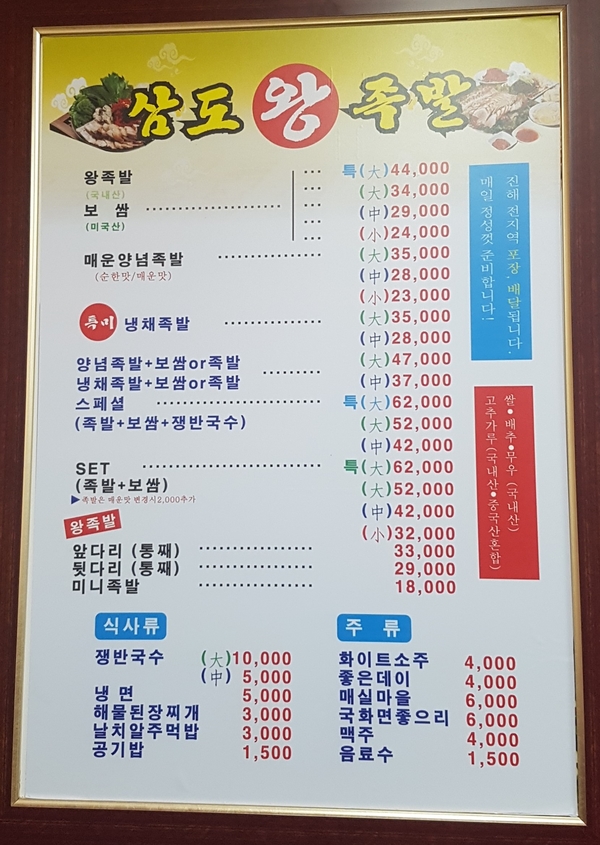 삼도 왕 족발
왕족발 ... 특(大)44,000
(국내산) ... (大)34,000
보 쌈 ... (中)29,000
(미국산) ... (小)24,000
매운양념족발 ... (大)35,000
(순한맛/매운맛) (中)28,000
(小)23,000
특미 냉채족발 ... (大)35,000
(中)28,000
양념족발+보쌈or족발 ... (大)47,000
냉채족발+보쌈or족발 (中)37,000
스페셜 ... 특(大)62,000
(족발+보쌈+쟁반국수) (大)52,000
(中)42,000
SET ... 특(大)62,000
(족발+보쌈) (大)52,000
▶족발은 매운맛 변경시2,000추가 (中)42,000
(小)32,000
왕족발
앞다리 (통째) ... 33,000
뒷다리 (통째) ... 29,000
미니족발 ... 18,000
진해 전지역 포장, 배달됩니다.
매일 정성껏 준비합니다!
쌀•배추•무우 (국내산)
고추가루 (국내산•중국산혼합)
식사류
쟁반국수 (大)10,000
(中) 5,000
냉 면 5,000
해물된장찌개 3,000
날치알주먹밥 3,000
공기밥 1,500
주 류
화이트소주 4,000
좋은데이 4,000
매실마을 6,000
국화면좋으리 6,000
맥주 4,000
음료수 1,500